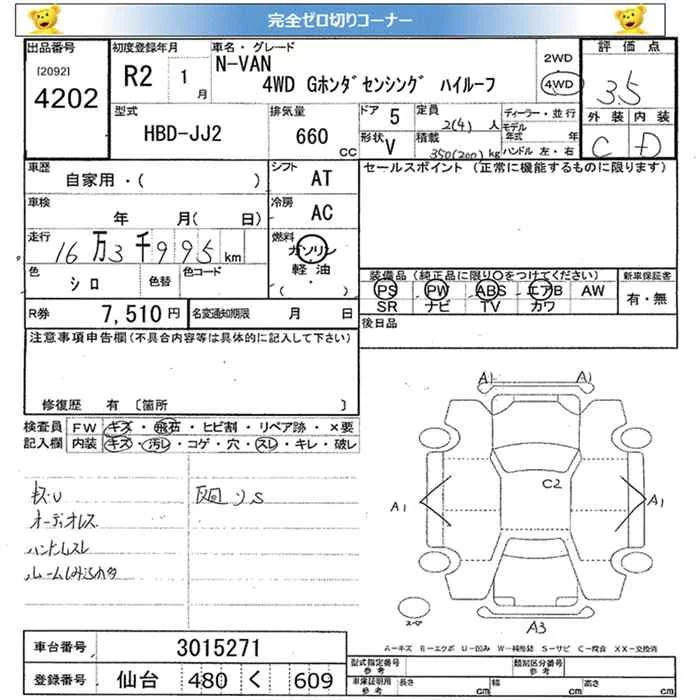 完全ゼロ切りコーナー
出品番号
[2092]
4202
初度登録年月
R2 1月
車名・グレード
N-VAN
4WD Gホンダセンシング ハイルーフ
2WD
4WD
評価点
3.5
外装 内装
C D
型式
HBD-JJ2
排気量
660 CC
ドア 5
形状 V
定員
2(4) 人
積載
350(200) kg
ディーラー・並行
モデル年式 年
ハンドル 左・右
車歴
自家用・( )
シフト
AT
車検
年 月( 日)
冷房
AC
走行
16万3千995 km
燃料
ガソリン
軽油
( )
色
シロ
色替
色コード
R券 7,510円
名変通知期限 月 日
セールスポイント (正常に機能するものに限ります)
装備品 (純正品に限り○をつけてください)
PS PW ABS エアB AW
SR ナビ TV カワ
新車保証書
有・無
後日品
注意事項申告欄(不具合内容等は具体的に記入して下さい)
修復歴 有 〔箇所 〕
検査員記入欄
FW キズ・飛石・ヒビ割・リペア跡・×要
内装 キズ・汚レ・コゲ・穴・スレ・キレ・破レ
オーディオレス
ハンドルスレ
A1 A1
C2
A1 A1
A3
スペア
A-キズ E-エクボ U-凹み W-補修跡 S-サビ C-腐食 XX-交換済
車台番号 3015271
登録番号 仙台 480 く 609
型式指定番号 参考
類別区分番号 参考
車庫証明用 参考
長さ cm 幅 cm 高さ cm